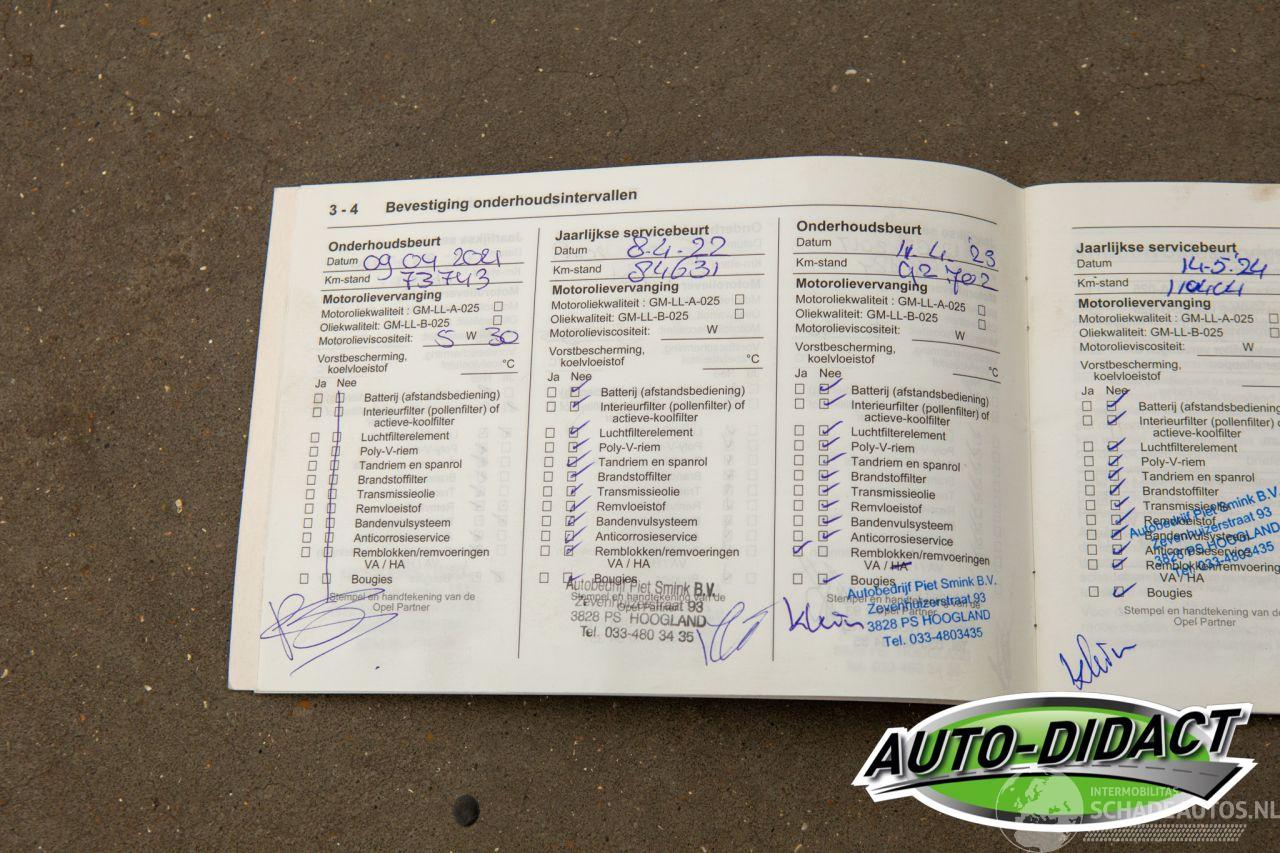 3 - 4 Bevestiging onderhoudsintervallen
Onderhoudsbeurt
Datum 09 04 2021
Km-stand 73743
Motorolievervanging
Motoroliekwaliteit : GM-LL-A-025
Oliekwaliteit: GM-LL-B-025
Motorolieviscositeit: 5 W 30
Vorstbescherming,
koelvloeistof °C
Ja Nee
Batterij (afstandsbediening)
Interieurfilter (pollenfilter) of
actieve-koolfilter
Luchtfilterelement
Poly-V-riem
Tandriem en spanrol
Brandstoffilter
Transmissieolie
Remvloeistof
Bandenvulsysteem
Anticorrosieservice
Remblokken/remvoeringen
VA / HA
Bougies
Stempel en handtekening van de
Opel Partner
Jaarlijkse servicebeurt
Datum 8.4.22
Km-stand 84631
Motorolievervanging
Motoroliekwaliteit: GM-LL-A-025
Oliekwaliteit: GM-LL-B-025
Motorolieviscositeit: W
Vorstbescherming,
koelvloeistof °C
Ja Nee
Batterij (afstandsbediening)
Interieurfilter (pollenfilter) of
actieve-koolfilter
Luchtfilterelement
Poly-V-riem
Tandriem en spanrol
Brandstoffilter
Transmissieolie
Remvloeistof
Bandenvulsysteem
Anticorrosieservice
Remblokken/remvoeringen
VA / HA
Bougies
Stempel en handtekening van de
Opel Partner
Autobedrijf Piet Smink B.V.
Zevenhuizerstraat 93
3828 PS HOOGLAND
Tel. 033-480 34 35
Onderhoudsbeurt
Datum 11.4.'23
Km-stand 92702
Motorolievervanging
Motoroliekwaliteit: GM-LL-A-025
Oliekwaliteit: GM-LL-B-025
Motorolieviscositeit: W
Vorstbescherming,
koelvloeistof °C
Ja Nee
Batterij (afstandsbediening)
Interieurfilter (pollenfilter) of
actieve-koolfilter
Luchtfilterelement
Poly-V-riem
Tandriem en spanrol
Brandstoffilter
Transmissieolie
Remvloeistof
Bandenvulsysteem
Anticorrosieservice
Remblokken/remvoeringen
VA / HA
Bougies
Stempel en handtekening van de
Opel Partner
Autobedrijf Piet Smink B.V.
Zevenhuizerstraat 93
3828 PS HOOGLAND
Tel. 033-4803435
Klein
Jaarlijkse servicebeurt
Datum 14-5.'24
Km-stand
Motorolievervanging
Motoroliekwaliteit: GM-LL-A-025
Oliekwaliteit: GM-LL-B-025
Motorolieviscositeit: W
Vorstbescherming,
koelvloeistof
Ja Nee
Batterij (afstandsbediening
Interieurfilter (pollenfilter) of
actieve-koolfilter
Luchtfilterelement
Poly-V-riem
Tandriem en spanrol
Brandstoffilter
Transmissieolie
Remvloeistof
Bandenvulsysteem
Anticorrosieservice
Remblokken/remvoeringen
VA / HA
Bougies
Stempel en handtekening van de
Opel Partner
Autobedrijf Piet Smink B.V.
Zevenhuizerstraat 93
3828 PS HOOGLAND
Tel. 033-4803435
Klein
AUTO-DIDACT
INTERMOBILITAS
SCHADEAUTOS.NL